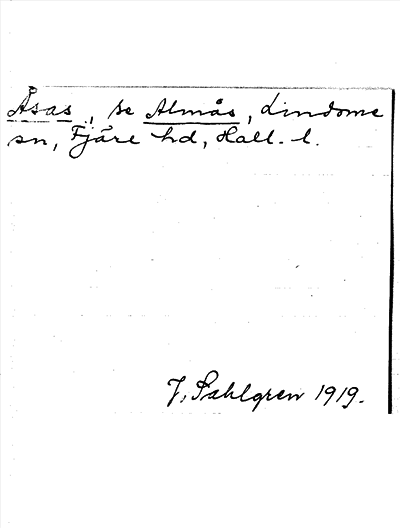 Åsas, se Almås, Lindome
sn, Fjäre hd, Hall. l.
J. Sahlgren 1919.